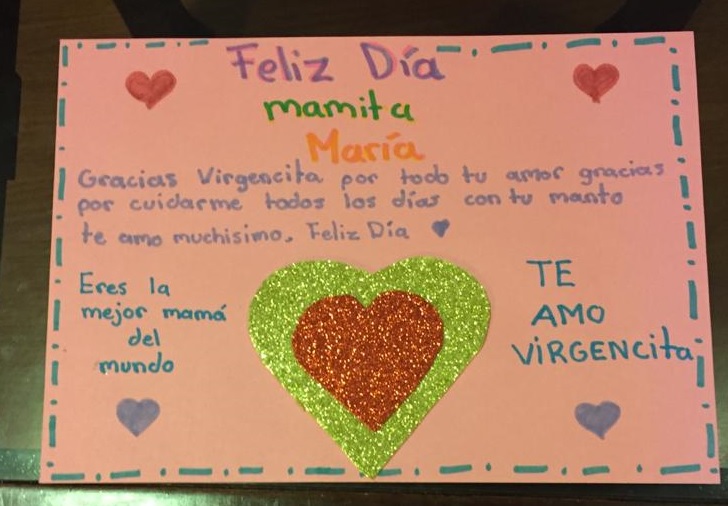 Feliz Día
mamita
María
Gracias Virgencita por todo tu amor gracias
por cuidarme todos los días con tu manto
te amo muchisimo. Feliz Día
Eres la
mejor mamá
del
mundo
TE
AMO
ViRGENCita